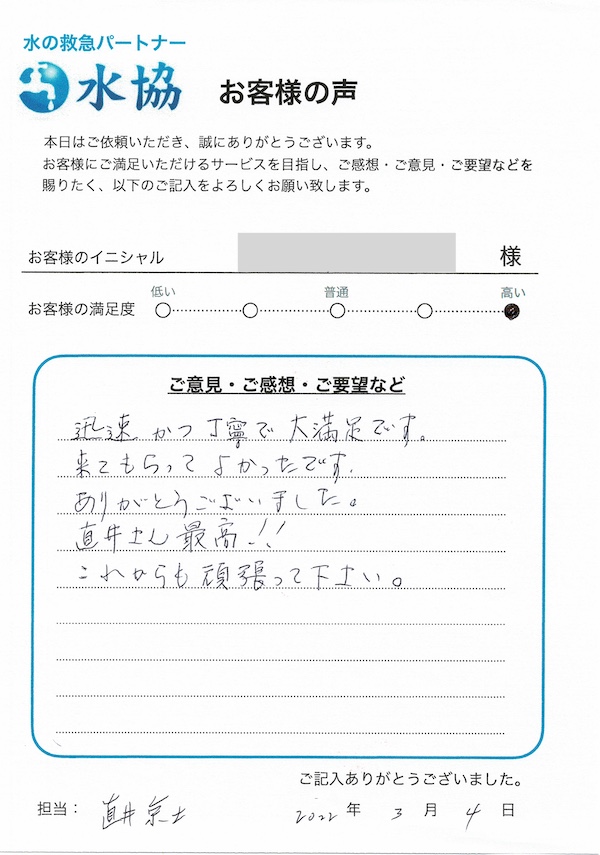 水の救急パートナー
水協 お客様の声
本日はご依頼いただき、誠にありがとうございます。
お客様にご満足いただけるサービスを目指し、ご感想・ご意見・ご要望などを
賜りたく、以下のご記入をよろしくお願い致します。
お客様のイニシャル 様
低い 普通 高い
お客様の満足度
ご意見・ご感想・ご要望など
迅速かつ丁寧で大満足です。
来てもらってよかったです.
ありがとうございました。
直井さん最高!!
これからも頑張って下さい。
ご記入ありがとうございました。
担当： 直井 京士 2022 年 3 月 4 日